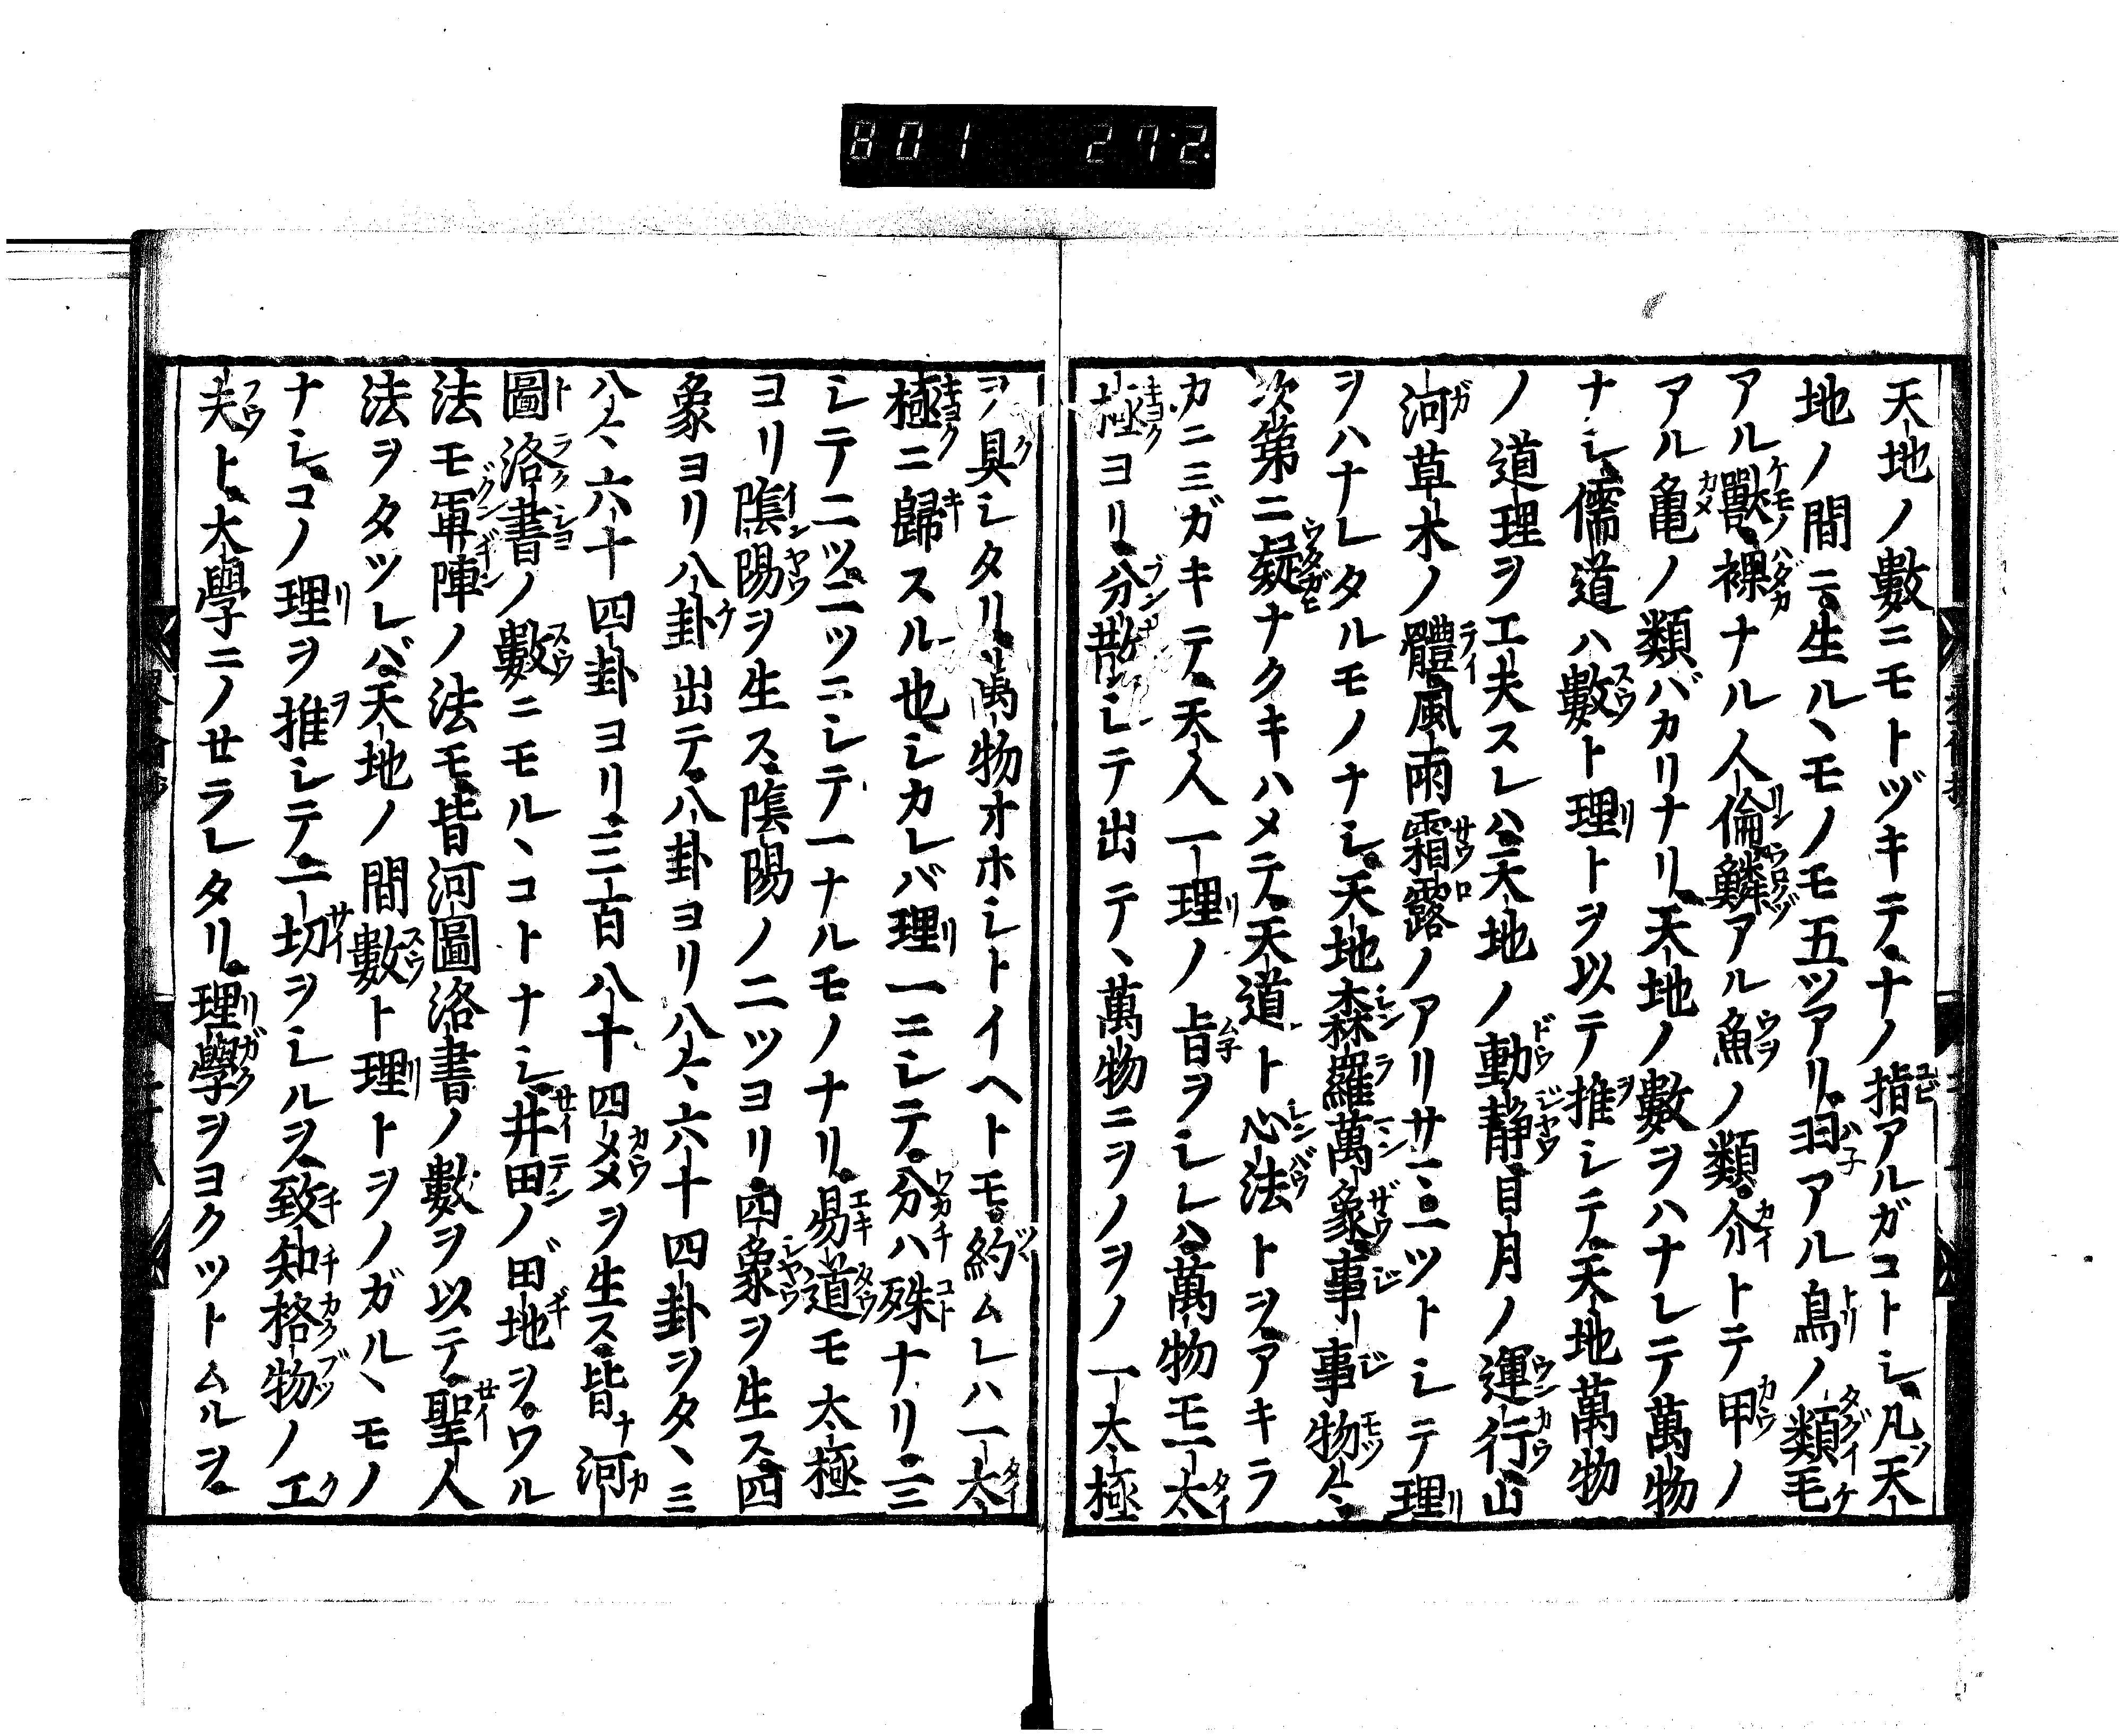 801 272
天地ノ數ニモトヅキテ、ナノ指アルガコトシ、凡天
地ノ間ニ生ル、モノモ五ツアリ、羽アル鳥ノ類毛
アル獸、裸ナル人倫鱗アル魚ノ類、介トテ甲ノ
アル亀ノ類バカリナリ、天地ノ數ヲハナレテ萬物
ナシ、儒道ハ數ト理トヲ以テ推シテ、天地萬物
ノ道理ヲ工夫スレハ、天地ノ動静日月ノ運行山
河草木ノ體、風雨霜露ノアリサマ三ツトシテ理
ヲハナレタルモノナシ、天地森羅萬象、事事物々
次第ニ疑ナクキハメテ、天道ト心法トヲアキラ
カニミガキテ、天人一理ノ旨ヲシレハ、萬物モ一太
極ヨリ分散シテ出テ、萬物ニヲノヲノ一太極
ヲ具シタリ、萬物オホシトイヘトモ、約ムレハ一太
極ニ歸スル也、シカレバ理一ニシテ、分ハ殊ナリ、三
シテ二ツ、二ツニシテ一ナルモノナリ、易道モ太極
ヨリ陰陽ヲ生ス、陰陽ノ二ツヨリ、四象ヲ生ス、四
象ヨリ八卦出テ、八卦ヨリ八々六十四卦ヲタヽミ
八々六十四卦ヨリ、三百八十四爻ヲ生ス、皆河
圖洛書ノ數ニモルヽコトナシ、井田ノ田地ヲ、ワル
法モ軍陣ノ法モ、皆河圖洛書ノ數ヲ以テ、聖人
法ヲタツレバ、天地ノ間數ト理トヲノガルヽモノ
ナシ、コノ理ヲ推シテ、一切ヲシルヲ、致知格物ノ工
夫ト、大學ニノセラレタリ、理學ヲヨクツトムルヲ、